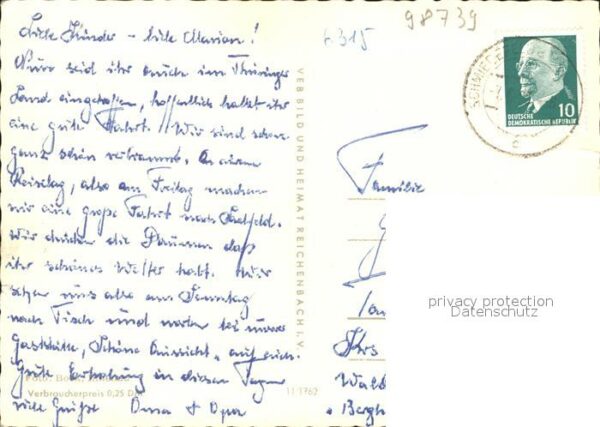 98739
6315
Liebe Kinder - liebe Marion!
Nun seid ihr auch im Thüringer
Land eingetroffen, hoffentlich hattet ihr
eine gute Fahrt. Wir sind schon
ganz schön verbrannt. An eurem
Reisetag, also am Freitag machen
wir eine große Fahrt nach
Wir drücken die Daumen daß
ihr schönes Wetter habt. Wir
sehen uns alle am Sonntag
nach Tisch und warten bei unserer
Gaststätte, "Schöne Aussicht" auf euch.
Gute Erholung in diesen Tagen
viele Grüße Oma + Opa
Verbraucherpreis 0,25 DM
11 1762
VEB BILD UND HEIMAT REICHENBACH i. V.
DEUTSCHE
DEMOKRATISCHE REPUBLIK
10
Familie
privacy protection
Datenschutz
Krs